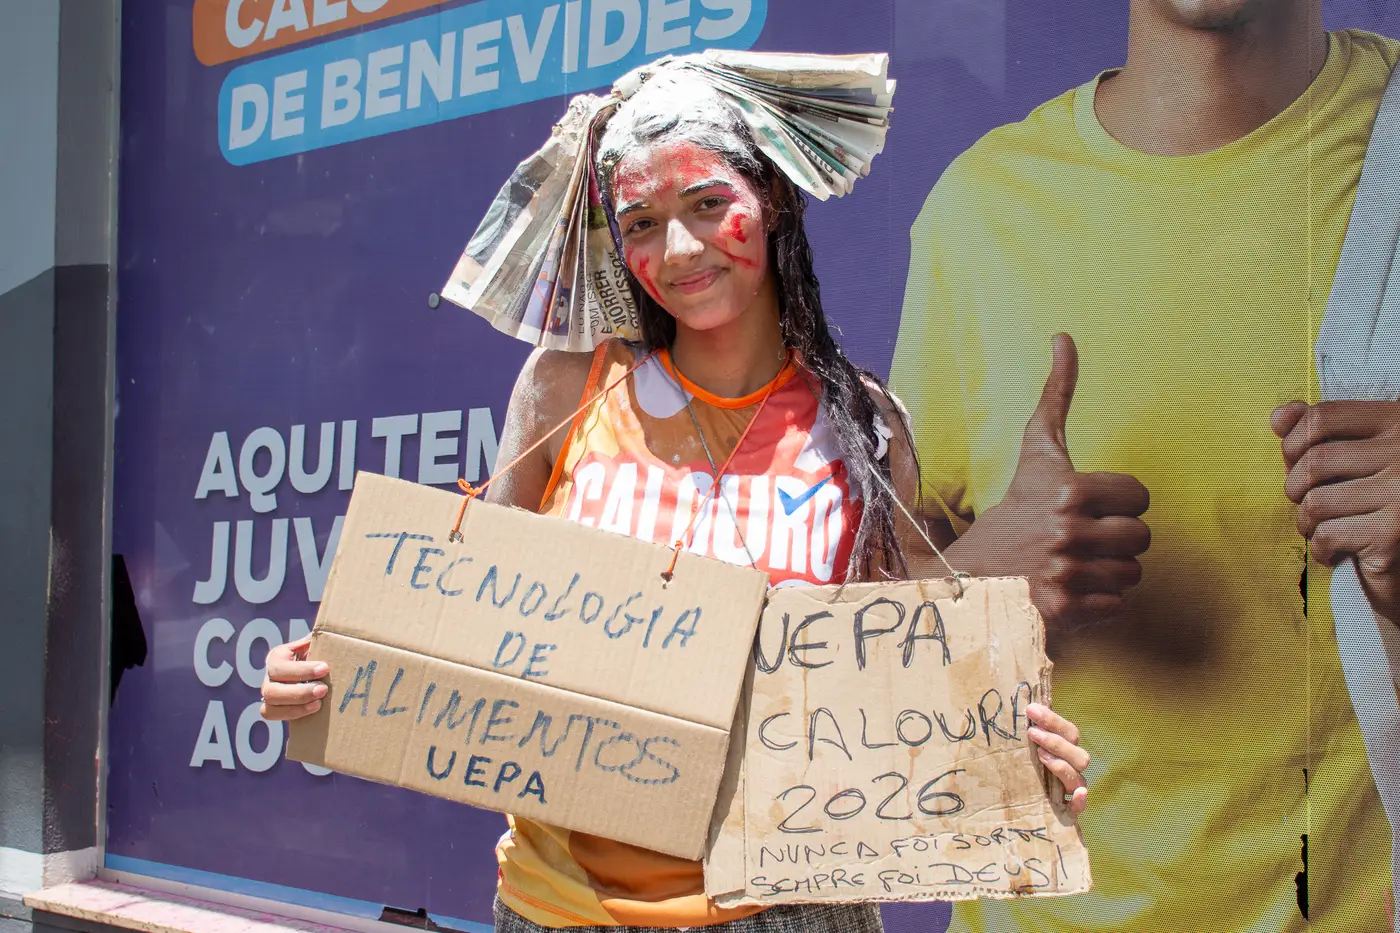 DE BENEVIDES
AQUI TEM
CALOURO
TECNOLOGIA
DE
ALIMENTOS
UEPA
UEPA
CALOURA
2026
NUNCA FOI SORTE
SEMPRE FOI DEUS!